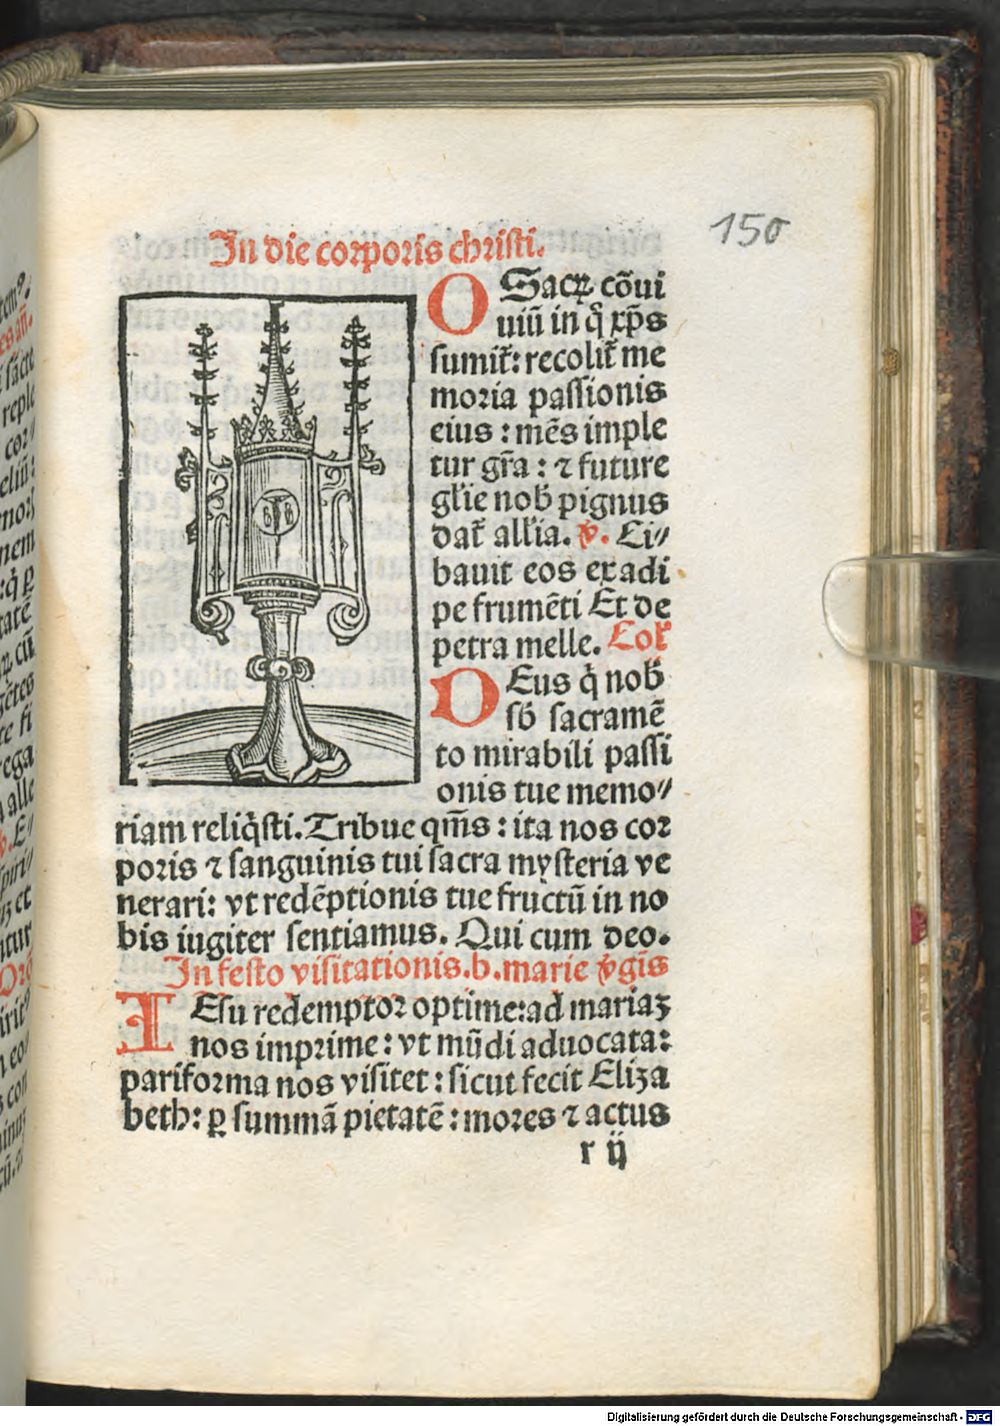 150
In die corporis christi.
O Sacꝝ cōui
uiū in q̊ xp̄s
sumit̄: recolit̄ me
moria passionis
eius : mēs imple
tur gr̄a : ⁊ future
gl̄ie nob̄ pignus
dat̄ all̄ia. ℣. Ci⸗
bauit eos ex adi
pe frumēti Et de
petra melle. Col̄
DEus q̊ nob̄
sb̄ sacramē
to mirabili passi
onis tue memo⸗
riam reliq̊sti. Tribue qm̄s : ita nos cor
poris ⁊ sanguinis tui sacra mysteria ve
nerari: vt redēptionis tue fructū in no
bis iugiter sentiamus. Qui cum deo.
In festo visitationis .b. marie v̄gīs
IEsu redemptor optime: ad mariaꝫ
nos imprime : vt mūdi aduocata:
pariforma nos visitet : sicut fecit Eliza
beth: ꝑ summā pietatē : mores ⁊ actus
r ij
Digitalisierung gefördert durch die Deutsche Forschungsgemeinschaft - DFG